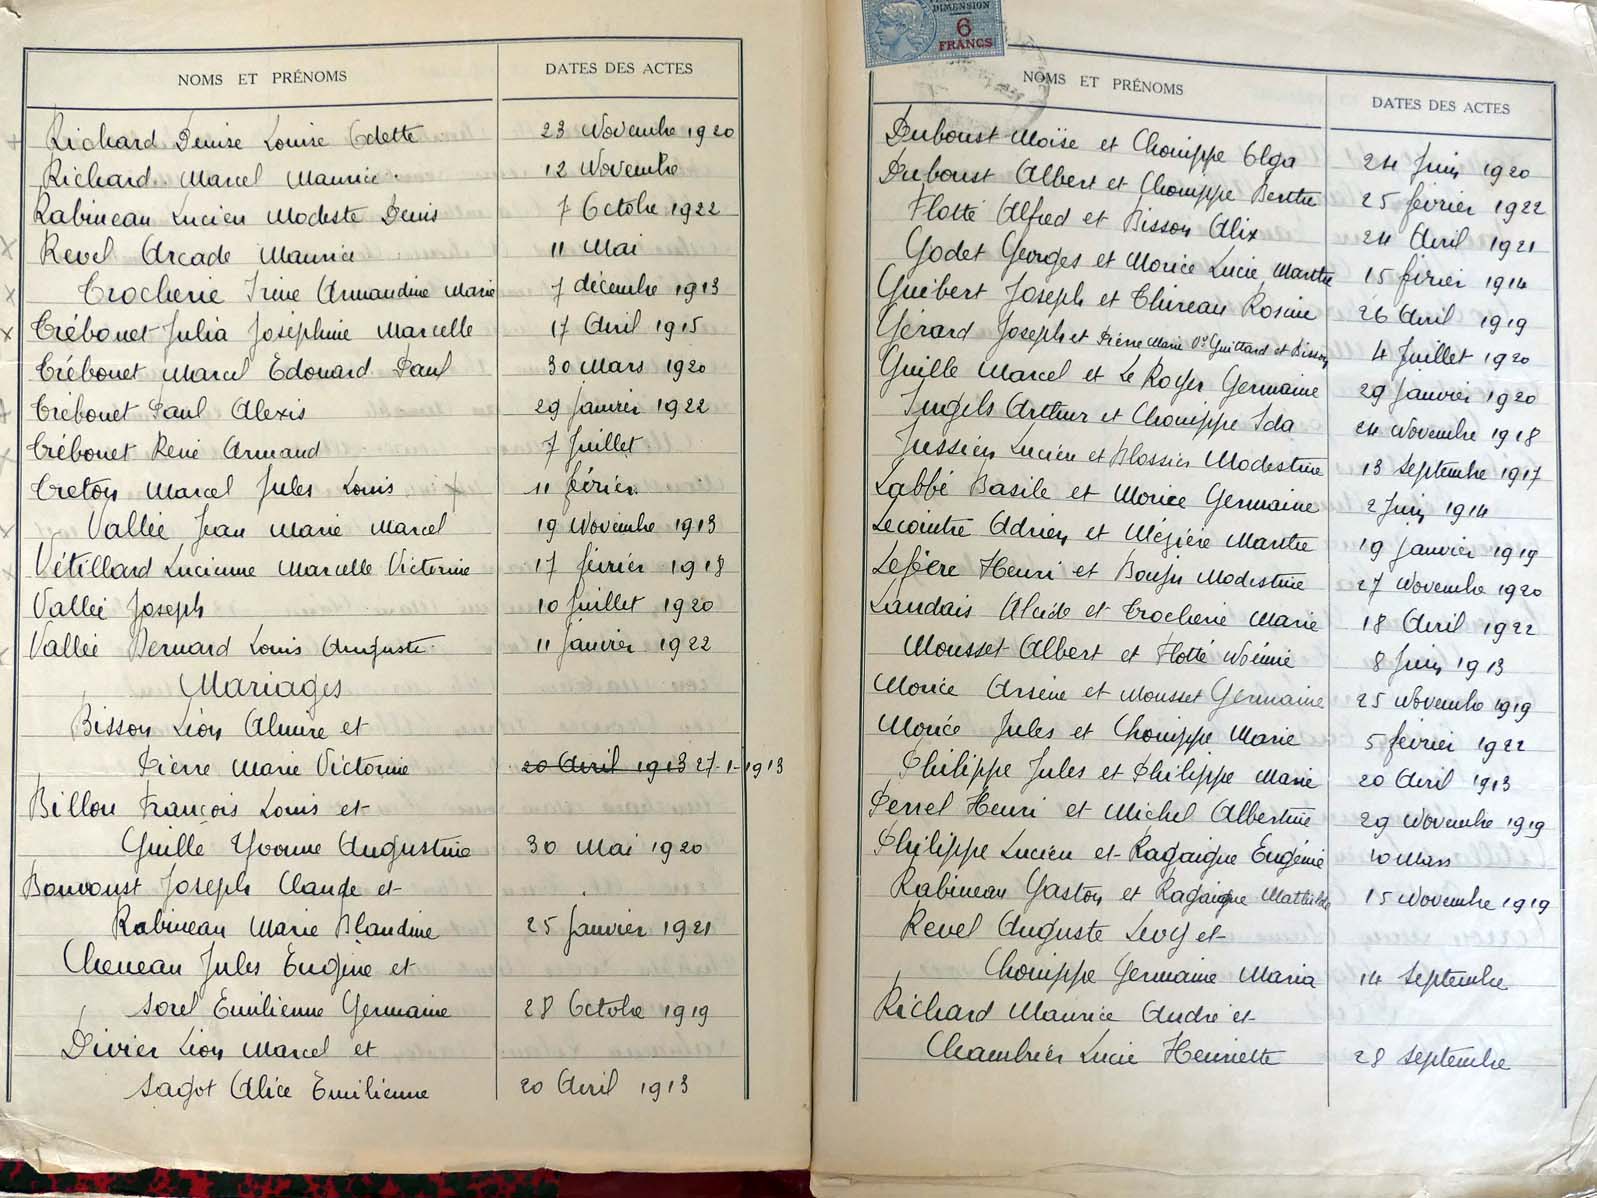 NOMS ET PRÉNOMS DATES DES ACTES
Richard Denise Louise Odette 23 Novembre 1920
Richard Marcel Maurice 12 Novembre
Rabineau Lucien Modeste Denis 7 Octobre 1922
Revel Arcade Maurice 11 Mai
Trocherie Irène Armandine Marie 7 décembre 1913
Trébouet Julia Joséphine Marcelle 17 Avril 1915
Trébouet Marcel Edouard Paul 30 Mars 1920
Trébouet Paul Alexis 29 Janvier 1922
Trébouet René Armand 7 Juillet
Creton Marcel Jules Louis 11 février
Vallée Jean Marie Marcel 19 Novembre 1913
Vétillard Lucienne Marcelle Victorine 17 février 1918
Vallée Joseph 10 Juillet 1920
Vallée Bernard Louis Auguste 11 Janvier 1922
Mariages
Bisson Léon Almire et
Pierre Marie Victorine 20 Avril 1913 27-1-1913
Billon François Louis et
Guille Yvonne Augustine 30 Mai 1920
Bonvoust Joseph Claude et
Rabineau Marie Blandine 25 Janvier 1921
Cheneau Jules Eugène et
Sorel Emilienne Germaine 28 Octobre 1919
Divier Léon Marcel et
Sagot Alice Emilienne 20 Avril 1913
DIMENSION
6
FRANCS
NOMS ET PRÉNOMS DATES DES ACTES
Duboust Moïse et Chouippe Olga 24 Juin 1920
Duboust Albert et Chouippe Berthe 25 février 1922
Flotté Alfred et Bisson Alix 24 Avril 1921
Godet Georges et Morice Lucie Marthe 15 février 1914
Guibert Joseph et Thireau Rosine 26 Avril 1919
Gérard Joseph et Pierre Marie Vve Guittard et Bisson 4 Juillet 1920
Guille Marcel et Le Royer Germaine 29 Janvier 1920
Ingels Arthur et Chouippe Ida 24 Novembre 1918
Jussien Lucien et Blossier Modestine 13 Septembre 1917
Labbé Basile et Morice Germaine 2 Juin 1914
Lecointre Adrien et Mézière Marthe 19 Janvier 1919
Lefèvre Henri et Boujn Modestine 27 Novembre 1920
Landais Alcide et Trocherie Marie 18 Avril 1922
Mousset Albert et Flotté Noémie 8 Juin 1913
Morice Arsène et Mousset Germaine 25 Novembre 1919
Morice Jules et Chouippe Marie 5 février 1922
Philippe Jules et Philippe Marie 20 Avril 1913
Perrel Henri et Michel Albertine 29 Novembre 1919
Philippe Lucien et Ragaigne Eugénie 10 Mars
Rabineau Gaston et Ragaigne Mathilde 15 Novembre 1919
Revel Auguste Levy et
Chouippe Germaine Maria 14 Septembre
Richard Maurice André et
Chambrier Lucie Henriette 28 Septembre